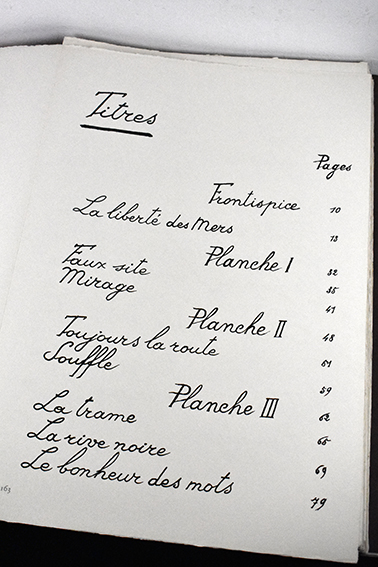 Titres
Pages
Frontispice 10
La liberté des Mers 13
Planche I 32
Faux site 35
Mirage 41
Planche II 48
Toujours la route 51
Souffle 59
Planche III 62
La trame 65
La rive noire 69
Le bonheur des mots 79
163